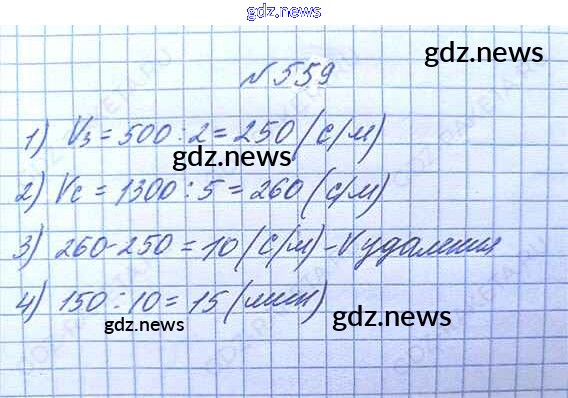 gdz.959
№559
gdz.news
1) Vз = 500 : 2 = 250 (с/м)
gdz.news
2) Vс = 1300 : 5 = 260 (с/м)
3) 260 - 250 = 10 (с/м) - V удаления
4) 150 : 10 = 15 (мин)
gdz.news
gdz.news